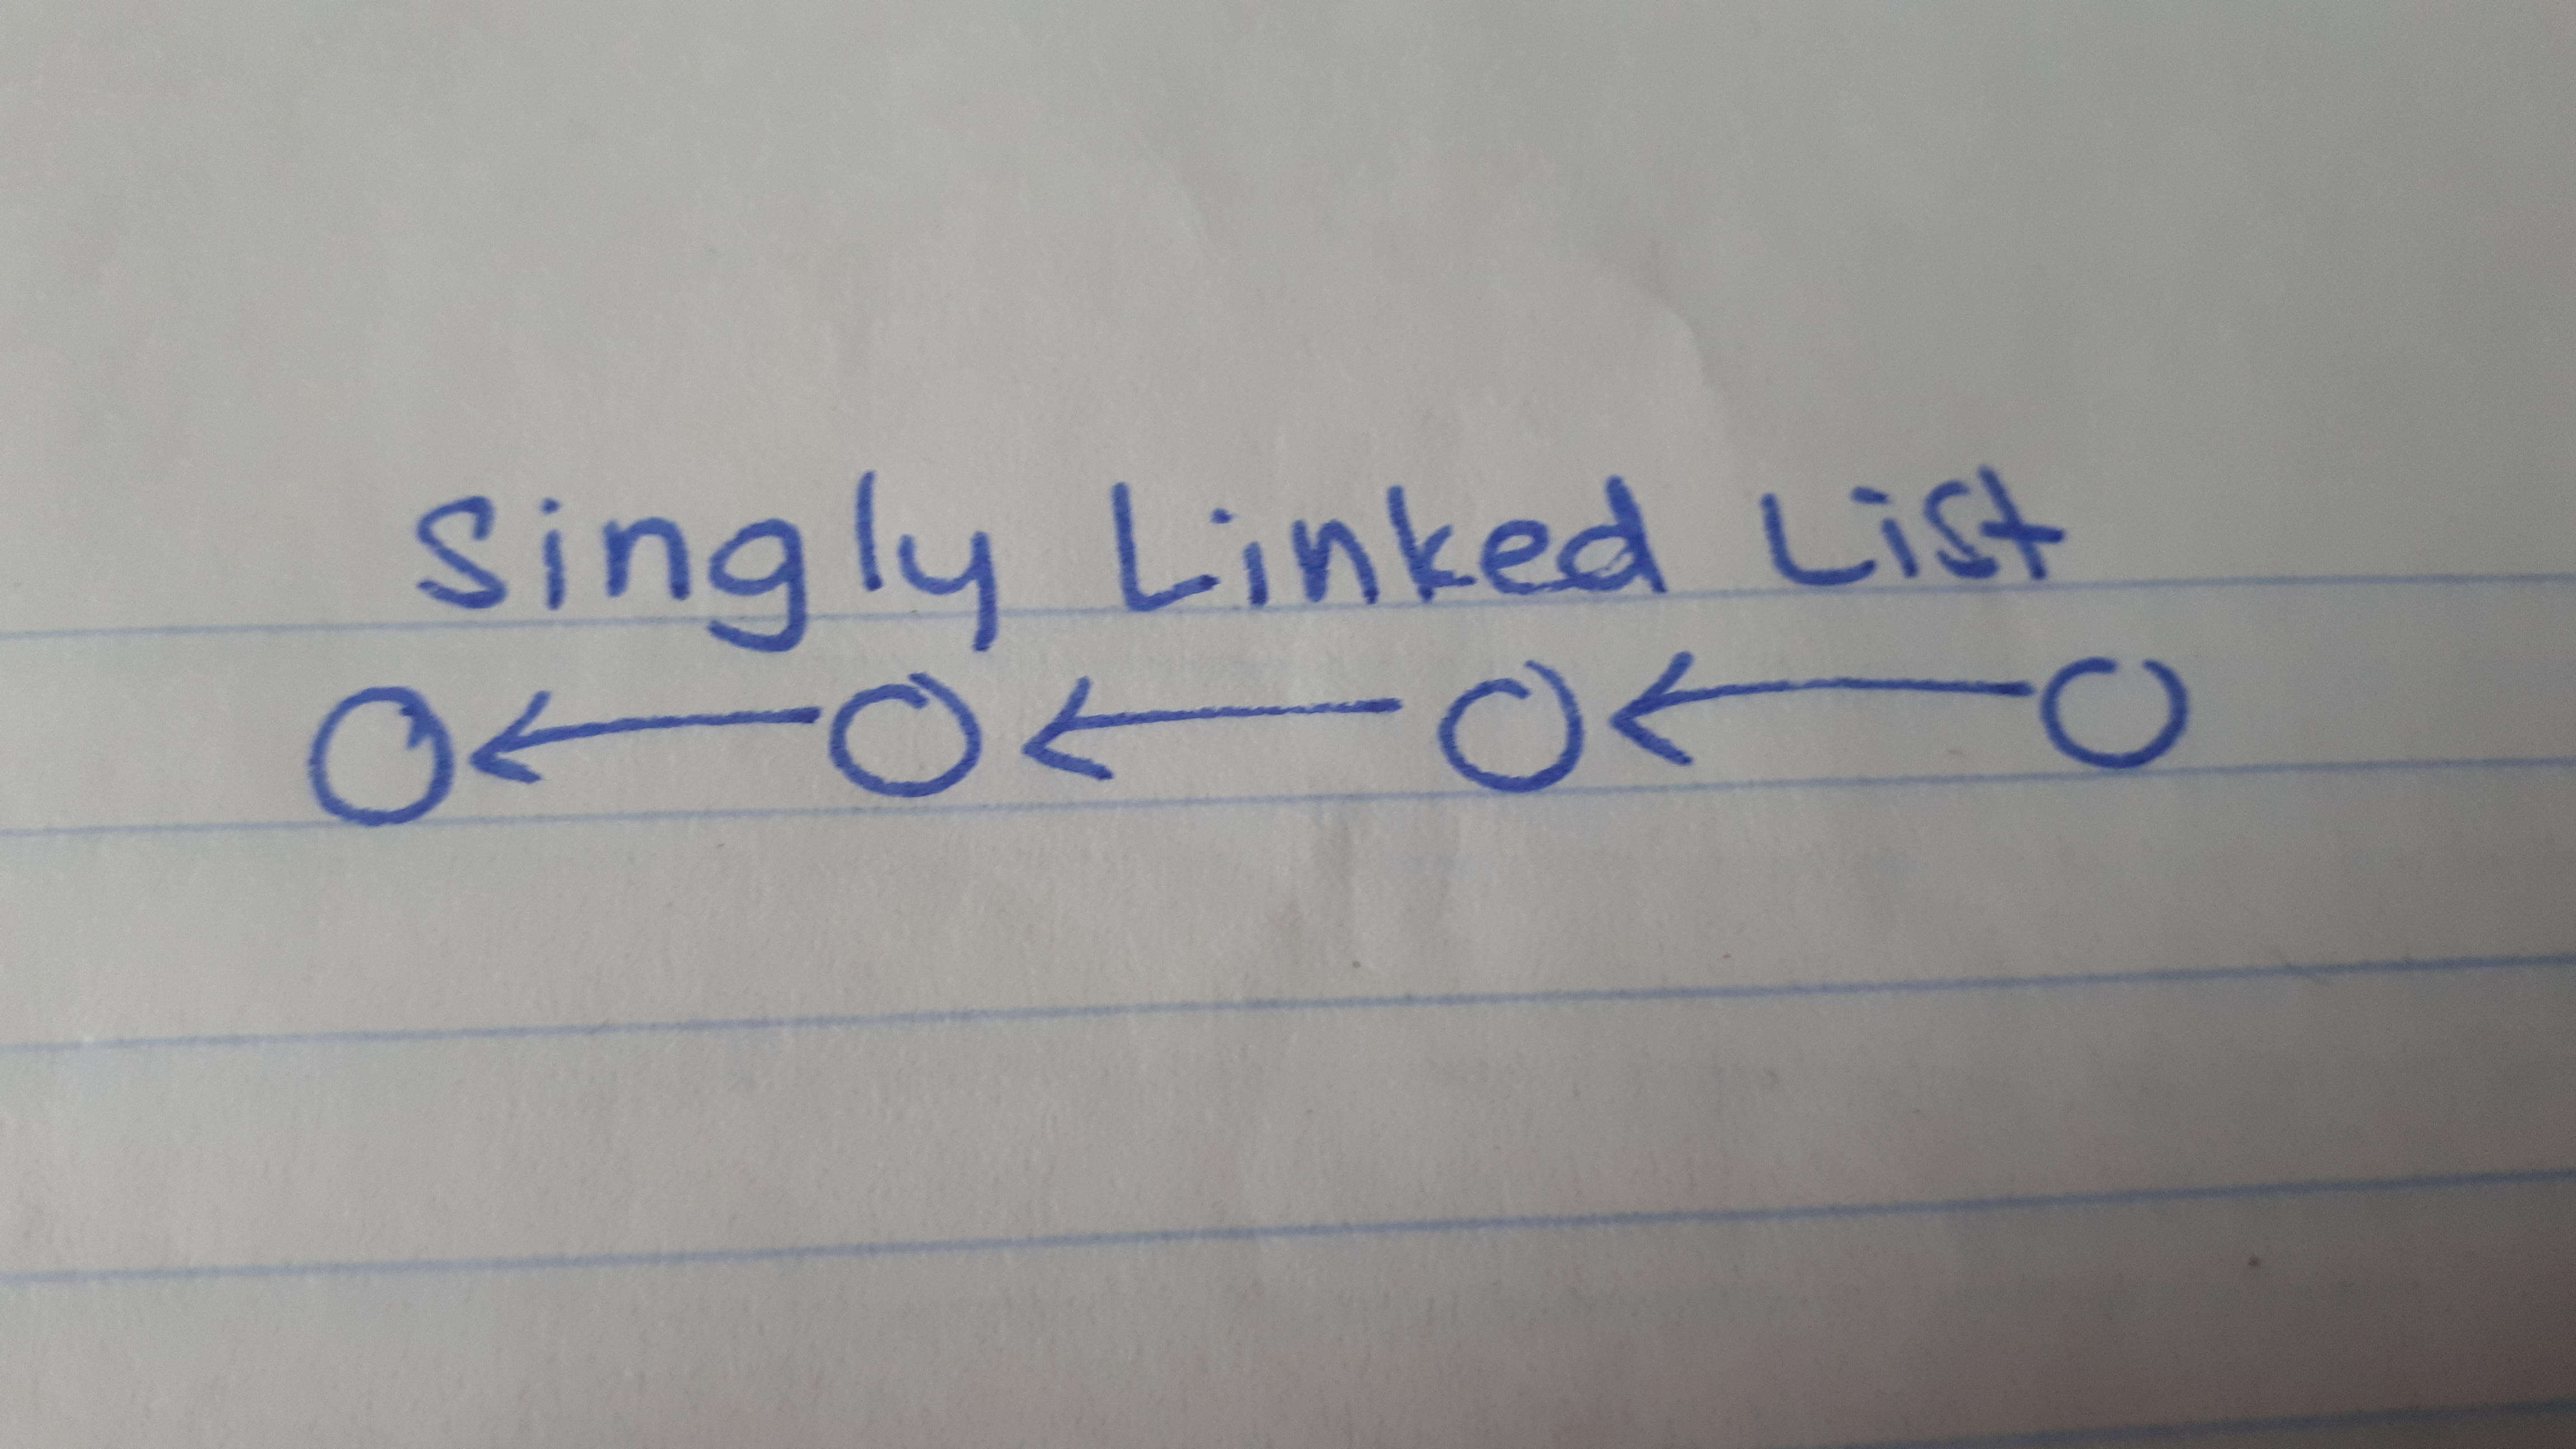 Singly Linked List